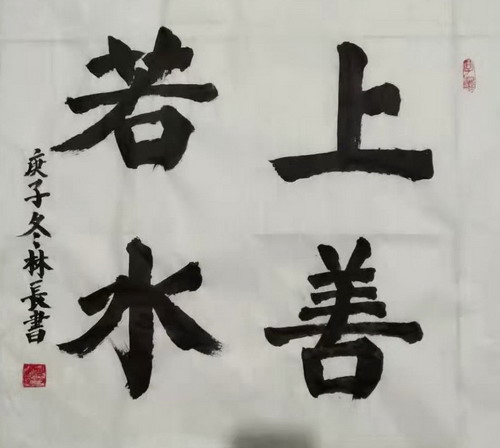 上善
若水
庚子冬林長書